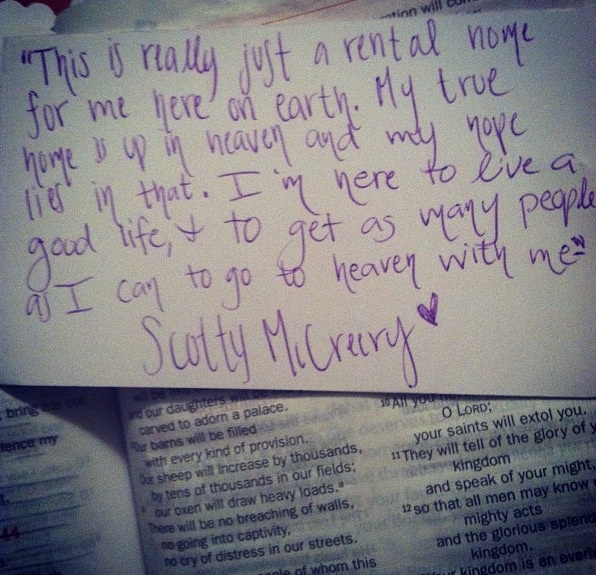 ation will
"This is really just a rental home
for me here on earth. My true
home is up in heaven and my hope
lies in that. I'm here to live a
good life, & to get as many people
as I can to go to heaven with me"
Scotty McCreery ♥
bring
ience my
t,
44
and our daughters will be
carved to adorn a palace.
Our barns will be filled
with every kind of provision.
Our sheep will increase by thousands,
by tens of thousands in our fields;
our oxen will draw heavy loads.
There will be no breaching of walls,
no going into captivity,
no cry of distress in our streets.
people of whom this
10 All you
O LORD;
your saints will extol you.
11 They will tell of the glory of y
kingdom
and speak of your might,
12 so that all men may know
mighty acts
and the glorious splend
kingdom.
Your kingdom is an everl